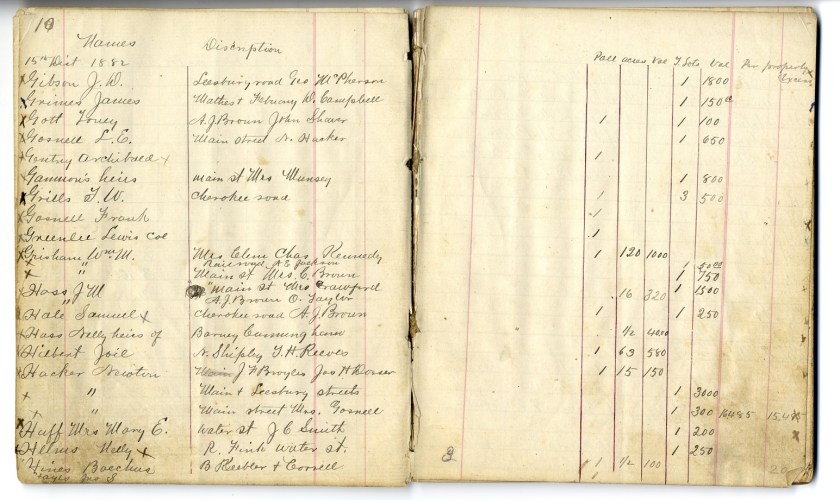 10
Names Discription Poll acres Val T Lots Val Per property
15th Dist 1882 Excess
x Gibson J. D. Leesburg road Geo McPherson 1 1800
x Grimes James Mathes + February W. Campbell 1 150
x Gott Toney A. J. Brown John Shaver 1 1 100
x Gosnell L. E. Main street N. Hacker 1 650
x Gentry Archibald x 1
Gammon's heirs main st Mrs Munsey 1 800
x Grills T. W. Cherokee road 1 3 500
x Gosnell Frank 1
x Greenlee Lewis Col 1
x Grisham Wm M. Mrs Clem Chas. Kennedy 1 120 1000
Railroad A. E. Jackson 1 50
x " Main st Mrs. E. Brown 1 750
x Hoss J M " main st Mrs Crawford 1 1500
" A. J. Brown O. Taylor 16 320
x Hale Samuel x Cherokee road A. J. Brown 1 1 250
x Hoss Nelly heirs of Barney Cunningham 1/2 40.00
x Hilbert Joil N. Shipley T. H. Reeves 1 63 580
x Hacker Newton Main J F Broyles Jas H 1 15 150
x " Main + Leesburg streets 1 3000
x " Main street Mrs. Gosnell 1 300 16485
x Huff Mrs Mary E. Water st J C Smith 1 200
x Helms Nelly x R. Fink Water st. 1 250
x Hines Bacchus B Keebler + Cornell 3 1 1 1/2 100 20
Hayes Geo S 1